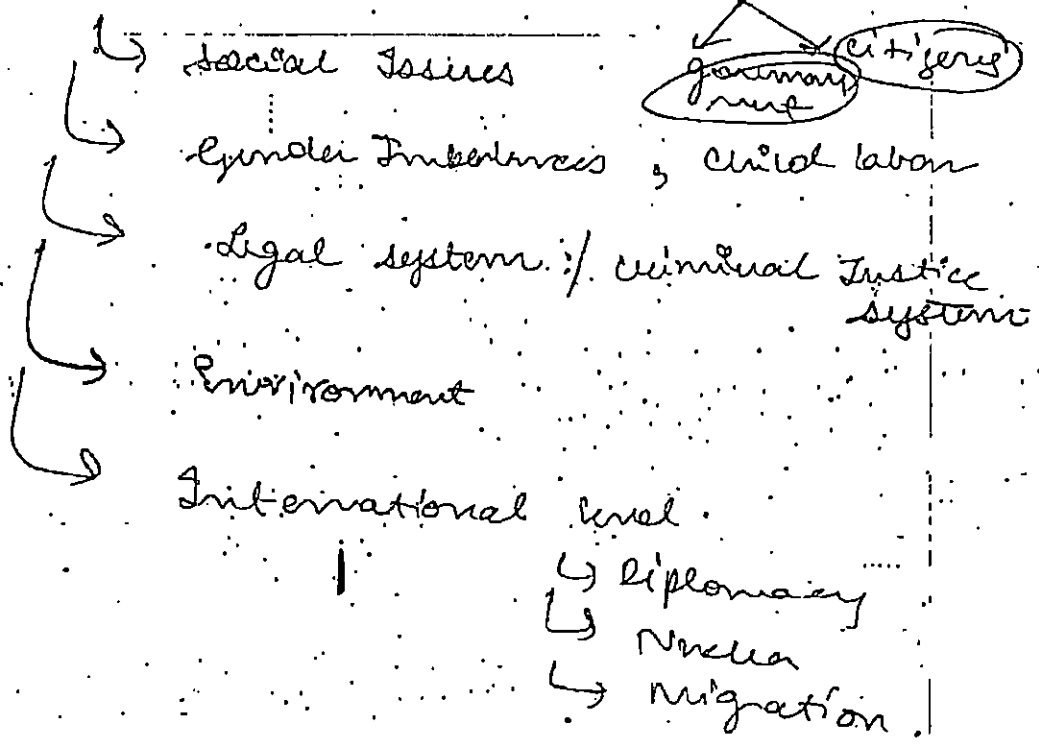 ↳ Social Issues
government citizens
↳ Gender Imbalances, child labor
↳ Legal system :/ criminal Justice
system
↳ Environment
↳ International level.
↳ Diplomacy
↳ Nuclear
↳ Migration.